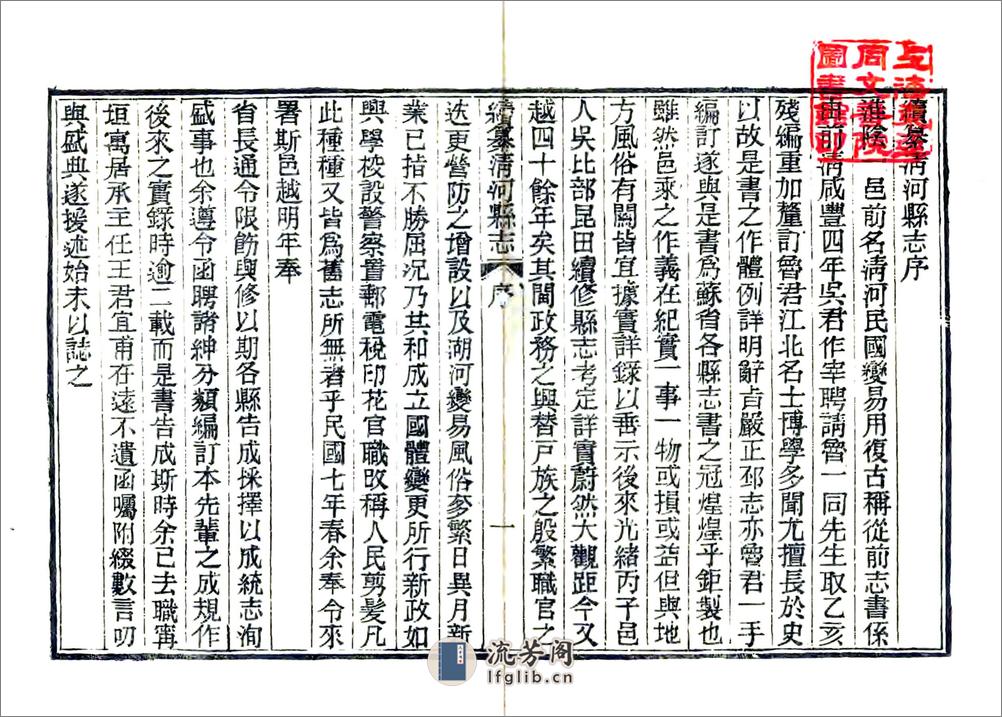 續纂清河縣志序
淮陰 邑前名清河民國變易用復古稱從前志書係
由前淸咸豐四年吳君作宰聘請魯一同先生取乙亥
殘編重加釐訂魯君江北名士博學多聞尤擅長於史
以故是書之作體例詳明辭旨嚴正邳志亦魯君一手
編訂遂與是書爲蘇省各縣志書之冠煌煌乎鉅製也
雖然邑乘之作義在紀實一事一物或損或益但與地
方風俗有關皆宜據實詳錄以垂示後來光緒丙子邑
人吳比部昆田續修縣志考定詳實蔚然大觀距今又
越四十餘年矣其間政務之興替戸族之殷繁職官之
續纂淸河縣志 序 一
迭更營防之增設以及湖河變易風俗參繁日異月新
業已指不勝屈況乃其和成立國體變更所行新政如
興學校設警察置郵電稅印花官職改稱人民剪髮凡
此種種又皆爲舊志所無者乎民國七年春余奉令來
署斯邑越明年奉
省長通令限飭與修以期各縣告成採擇以成統志洵
盛事也余遵令函聘諸紳分類編訂本先輩之成規作
後來之實錄時逾二載而是書告成斯時余已去職甯
垣寓居承主任王君宜甫在遠不遺函囑附綴數言叨
與盛典遂援述始末以誌之
流芳阁
lfglib.cn